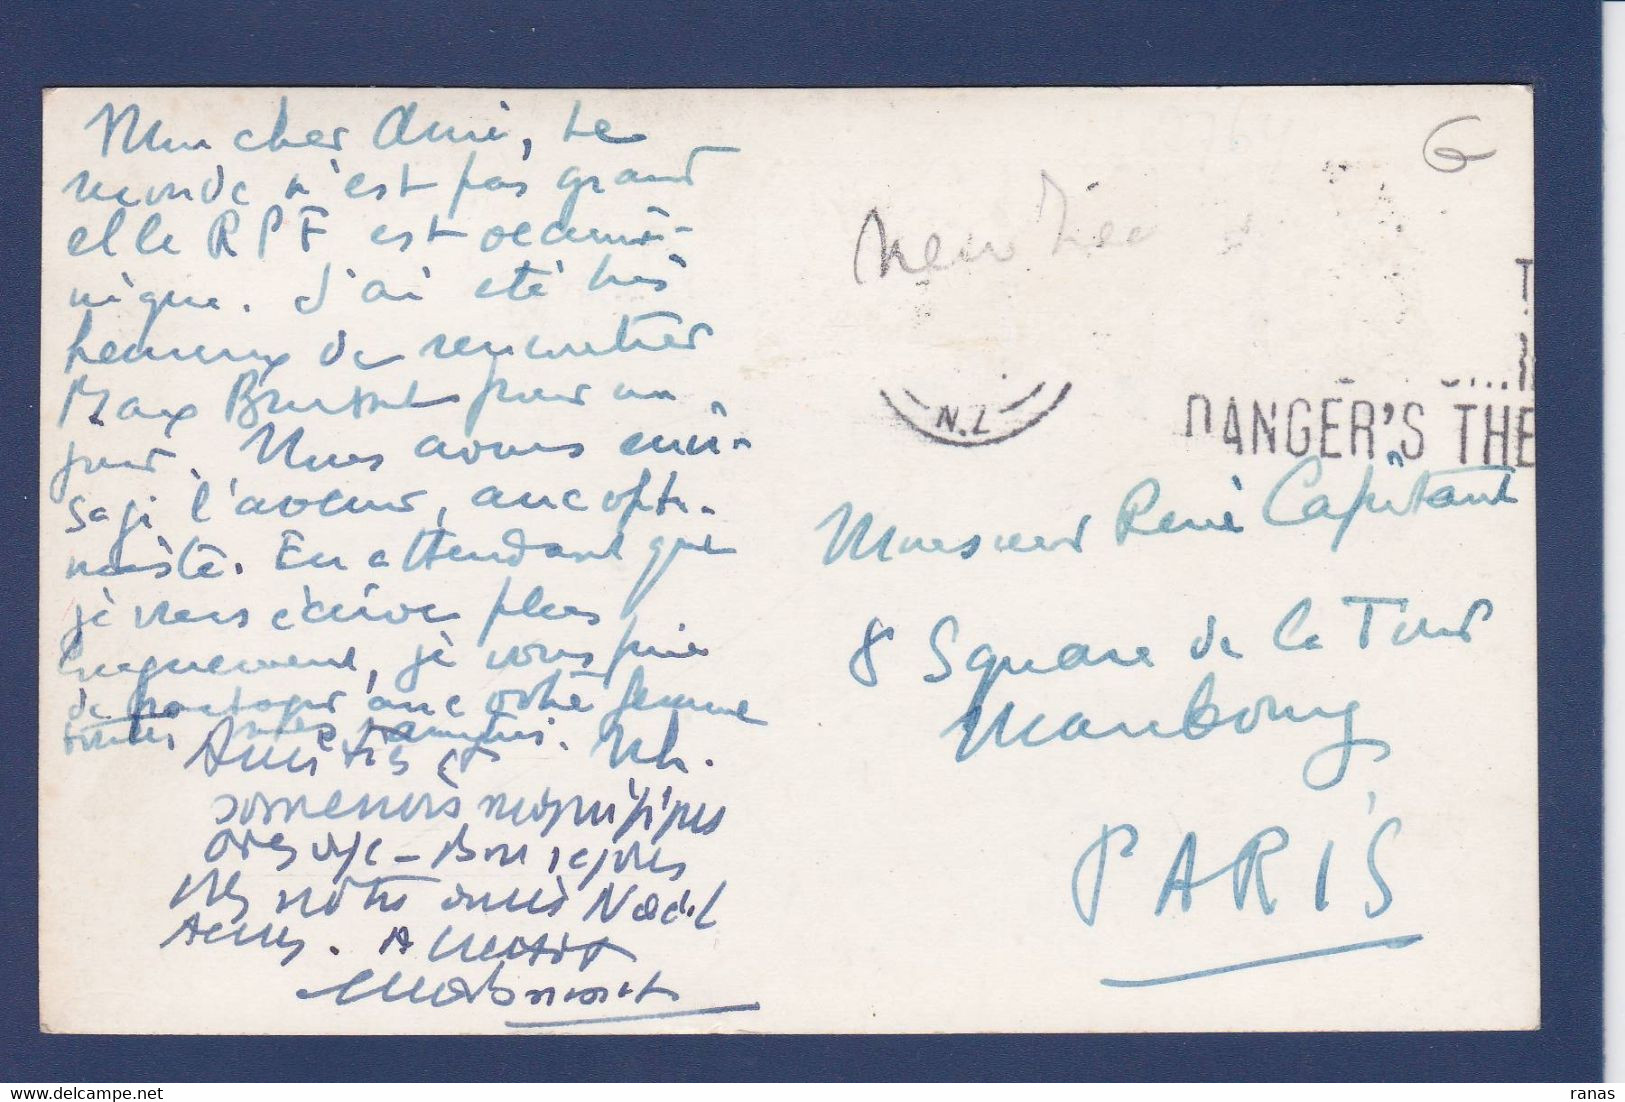 Mon cher Ami, Le
monde n'est pas grand
et le RPF est oecumé-
nique. J'ai été très
heureux de rencontrer
Max Brusset pour un
jour. Nous avons envi-
sagé l'avenir, avec opti-
misme. En attendant que
je vous écrive plus
longuement, je vous prie
de partager avec votre femme
toutes mes amitiés.
Amitiés et
souvenirs magnifiques
notre amie Noël
Max Brusset
New Zee
G
N.Z
DANGER'S THE
Monsieur René Capitant
8 Square de La Tour
Maubourg
PARIS
ranas